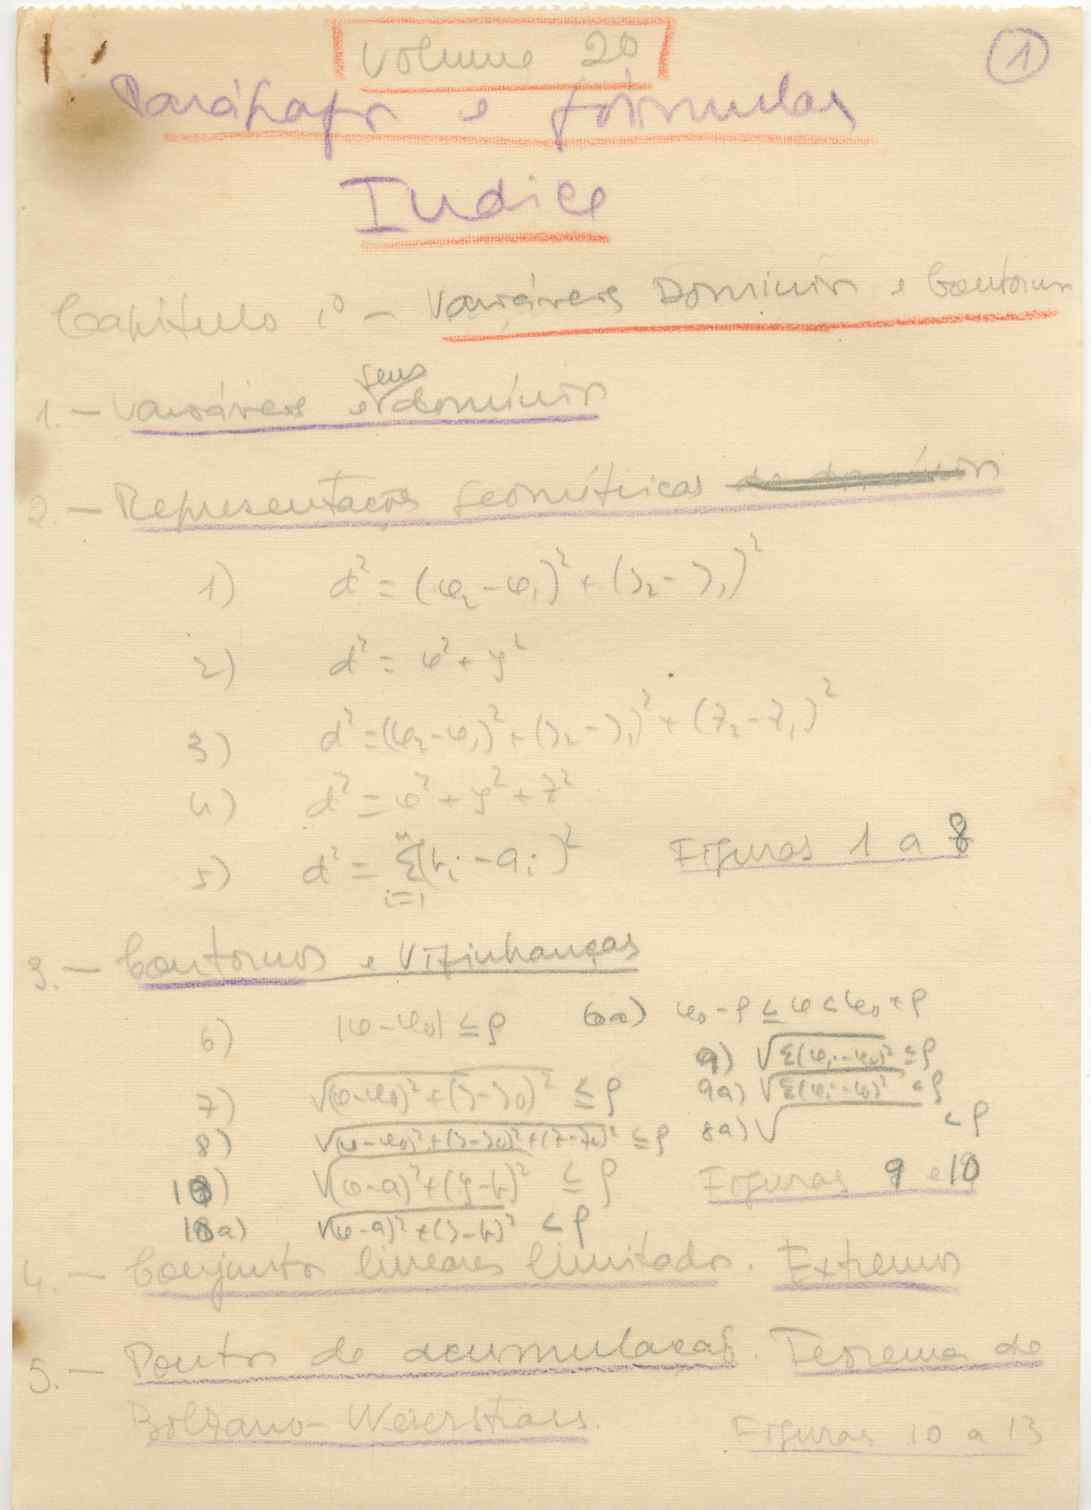 Volume 20
1
Paráfrafos e fórmulas
Indice
Capítulo 1º - Variáveis Dominios e Contornos
1. - Variáveis e seus domínios
2. - Representações geométricas de domínios
1) d² = (x₂ - x₁)² + (y₂ - y₁)²
2) d² = x² + y²
3) d² = (x₂ - x₁)² + (y₂ - y₁)² + (z₂ - z₁)²
4) d² = x² + y² + z²
5) d² = Σ(bᵢ - aᵢ)² n i=1 Figuras 1 a 8
3. - Contornos e Vizinhanças
6) |x - x₀| ≤ ρ 6a) x₀ - ρ ≤ x ≤ x₀ + ρ
9) √Σ(xᵢ - x₀)² ≤ ρ
7) √(x - x₀)² + (y - y₀)² ≤ ρ 9a) √Σ(xᵢ - x₀)² < ρ
8) √(x - x₀)² + (y - y₀)² + (z - z₀)² ≤ ρ 8a) √ < ρ
10) √(x - a)² + (y - b)² ≤ ρ Figuras 9 e 10
10a) √(x - a)² + (y - b)² < ρ
4. - Conjuntos lineares limitados. Extremos
5. - Pontos de acumulação. Teorema de
Bolzano-Weierstrass. Figuras 10 a 13